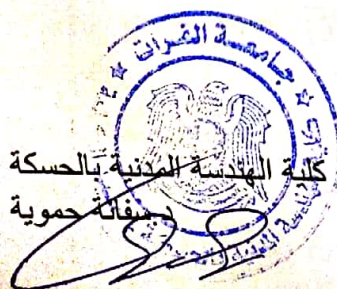 جامعة الفرات
كلية الهندسة المدنية بالحسكة
د.سفانة حموية